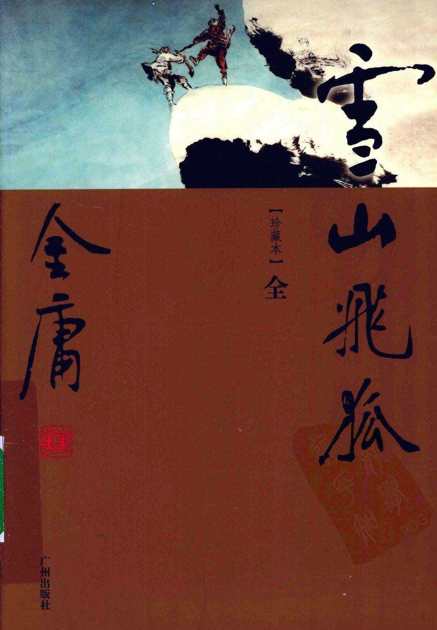 雪山飛狐
【珍藏本】
全
金庸
广州出版社